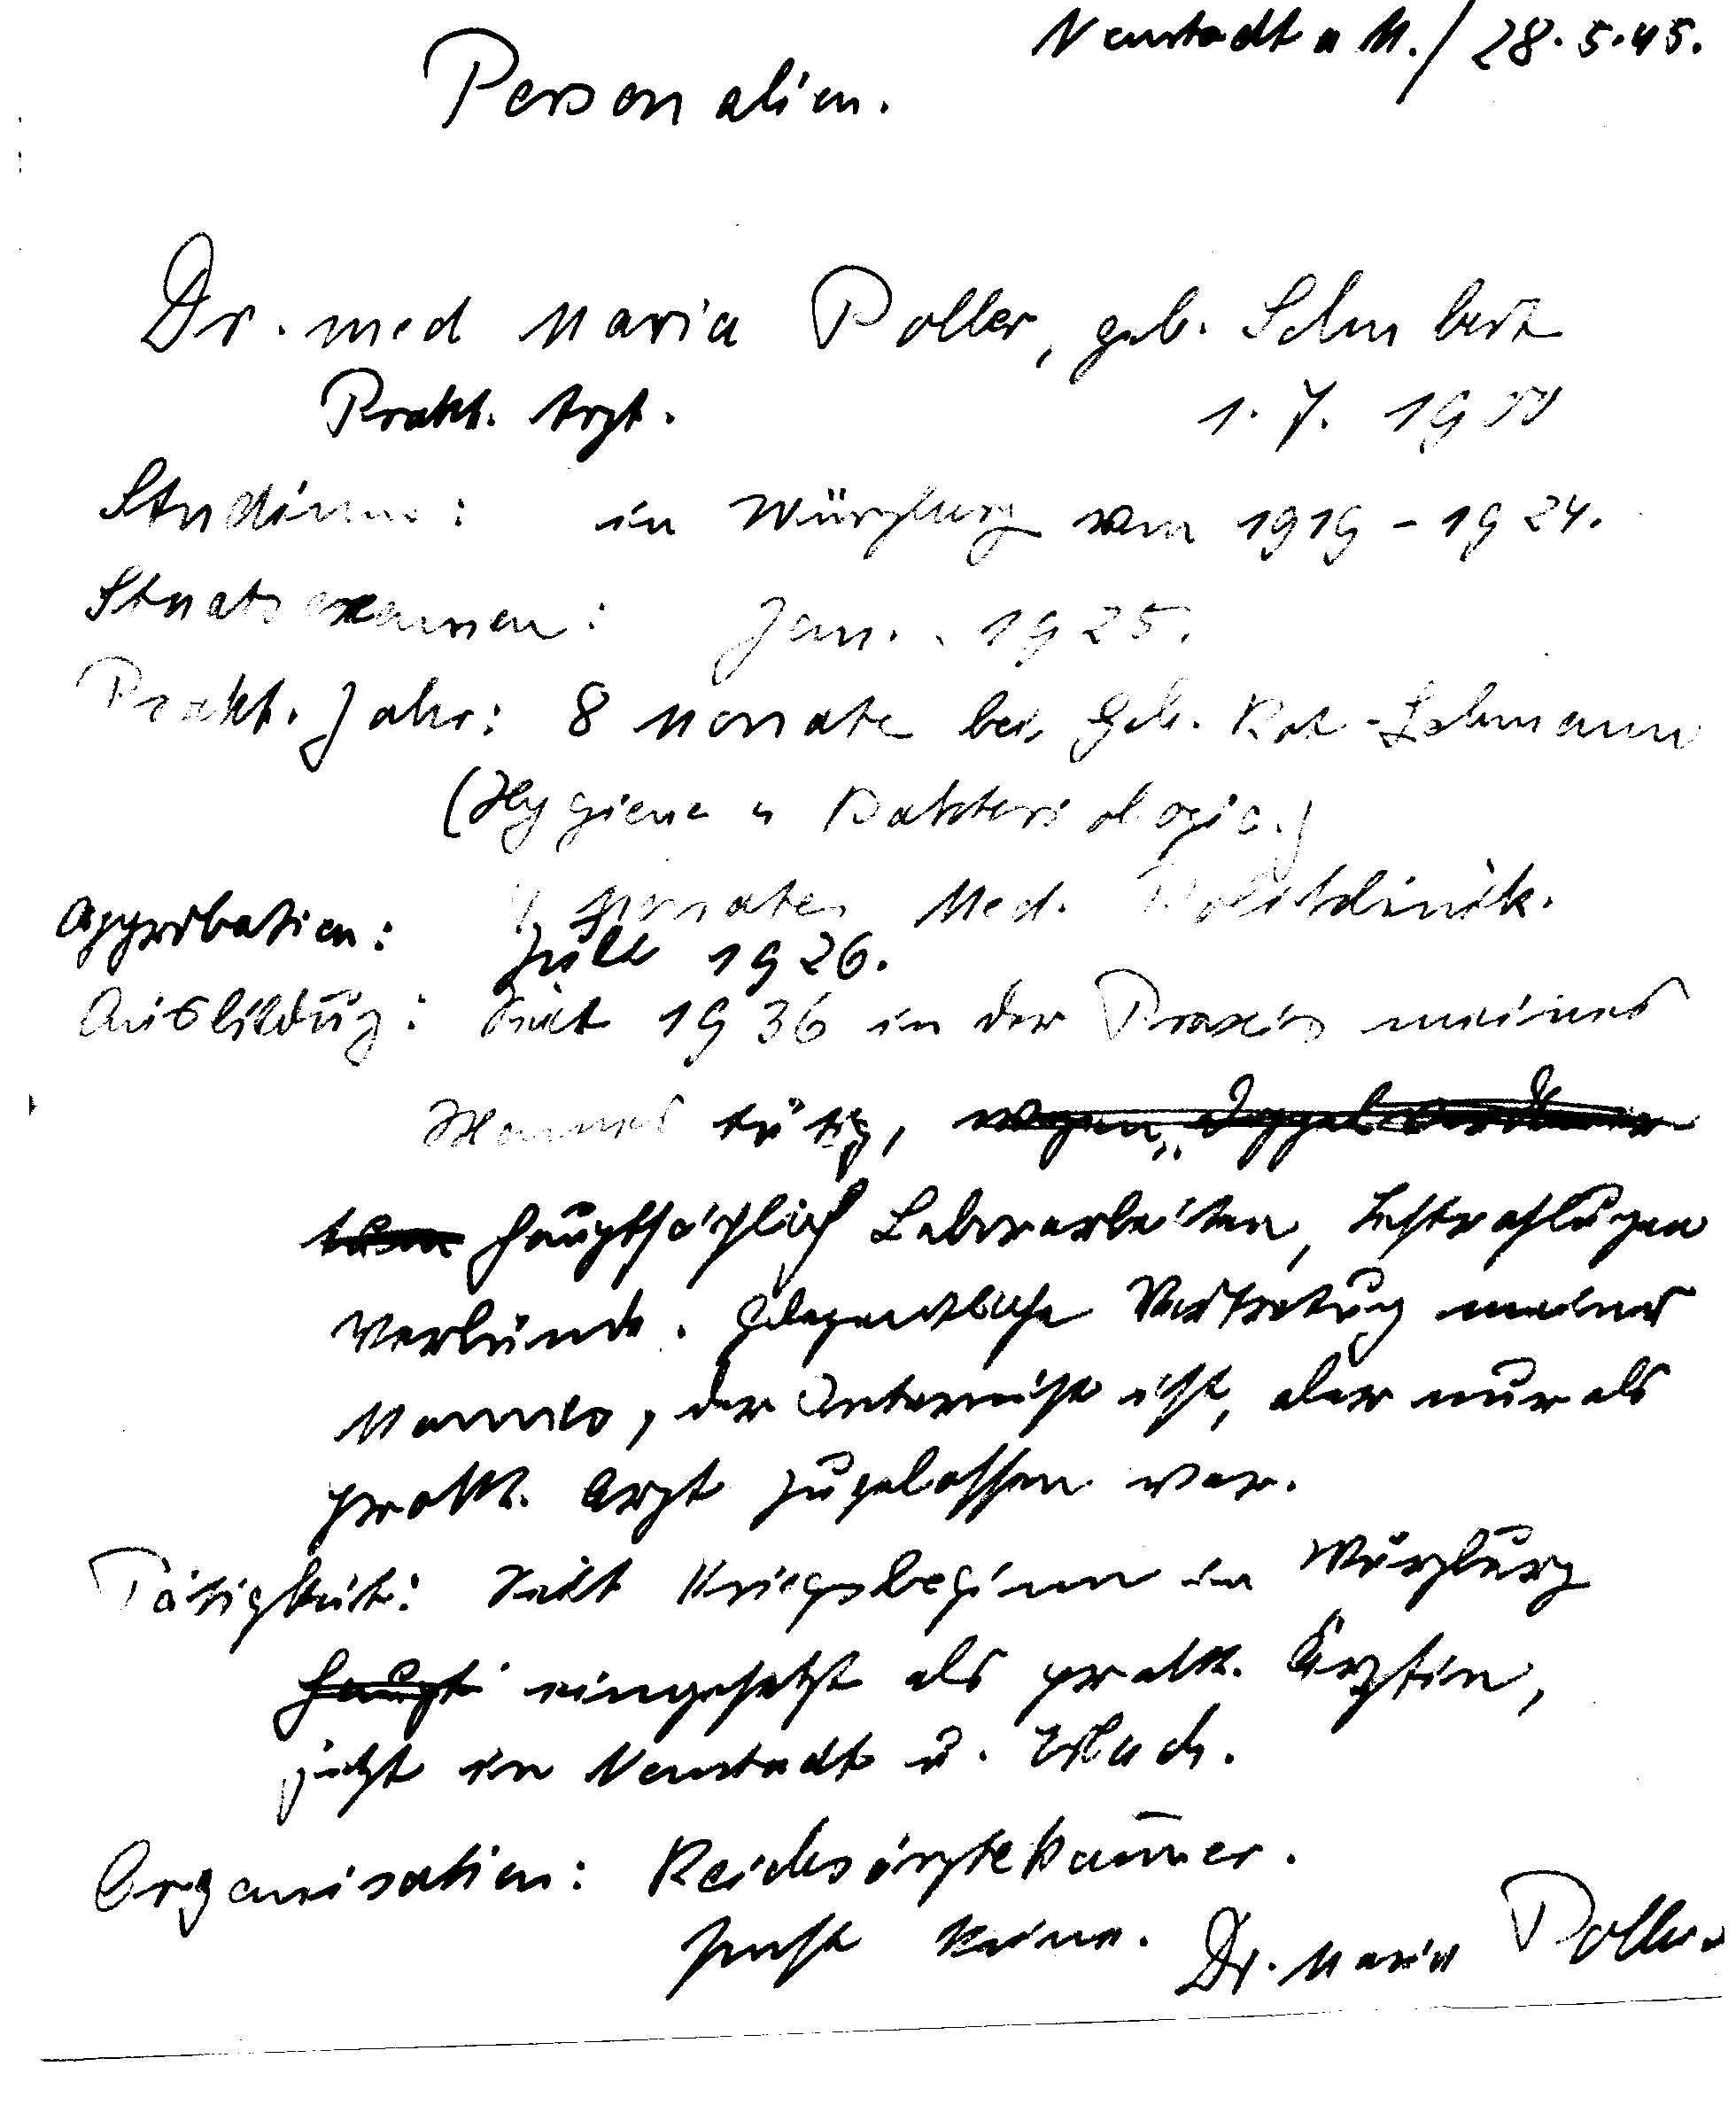 Neustadt a M./ 28.5.45.
Personalien.
Dr. med Maria Poller, geb. Schubert
Prakt. Arzt. 1. 7. 1900
Studium: in Würzburg von 1919 - 1924.
Staatsexamen: Jan. 1925.
Prakt. Jahr: 8 Monate bei Geh. Rat Lehmann
(Hygiene u Bakteriologie.)
4 Monate Med. Poliklinik.
Approbation: Juli 1926.
Ausbildung: Seit 1936 in der Praxis meines
Mannes tätig, wegen „Doppelverdiener
tum hauptsächlich Laborarbeiten, Bestrahlungen
Verbände. Gelegentliche Vertretung meines
Mannes, der Internist ist, aber nur als
prakt. Arzt zugelassen war.
Tätigkeit: Seit Kriegsbeginn in Würzburg
haupt eingesetzt als prakt. Ärztin,
jetzt in Neustadt u. Erlach.
Organisation: Reichsärztekam̅er.
sonst keine. Dr. Maria Poller